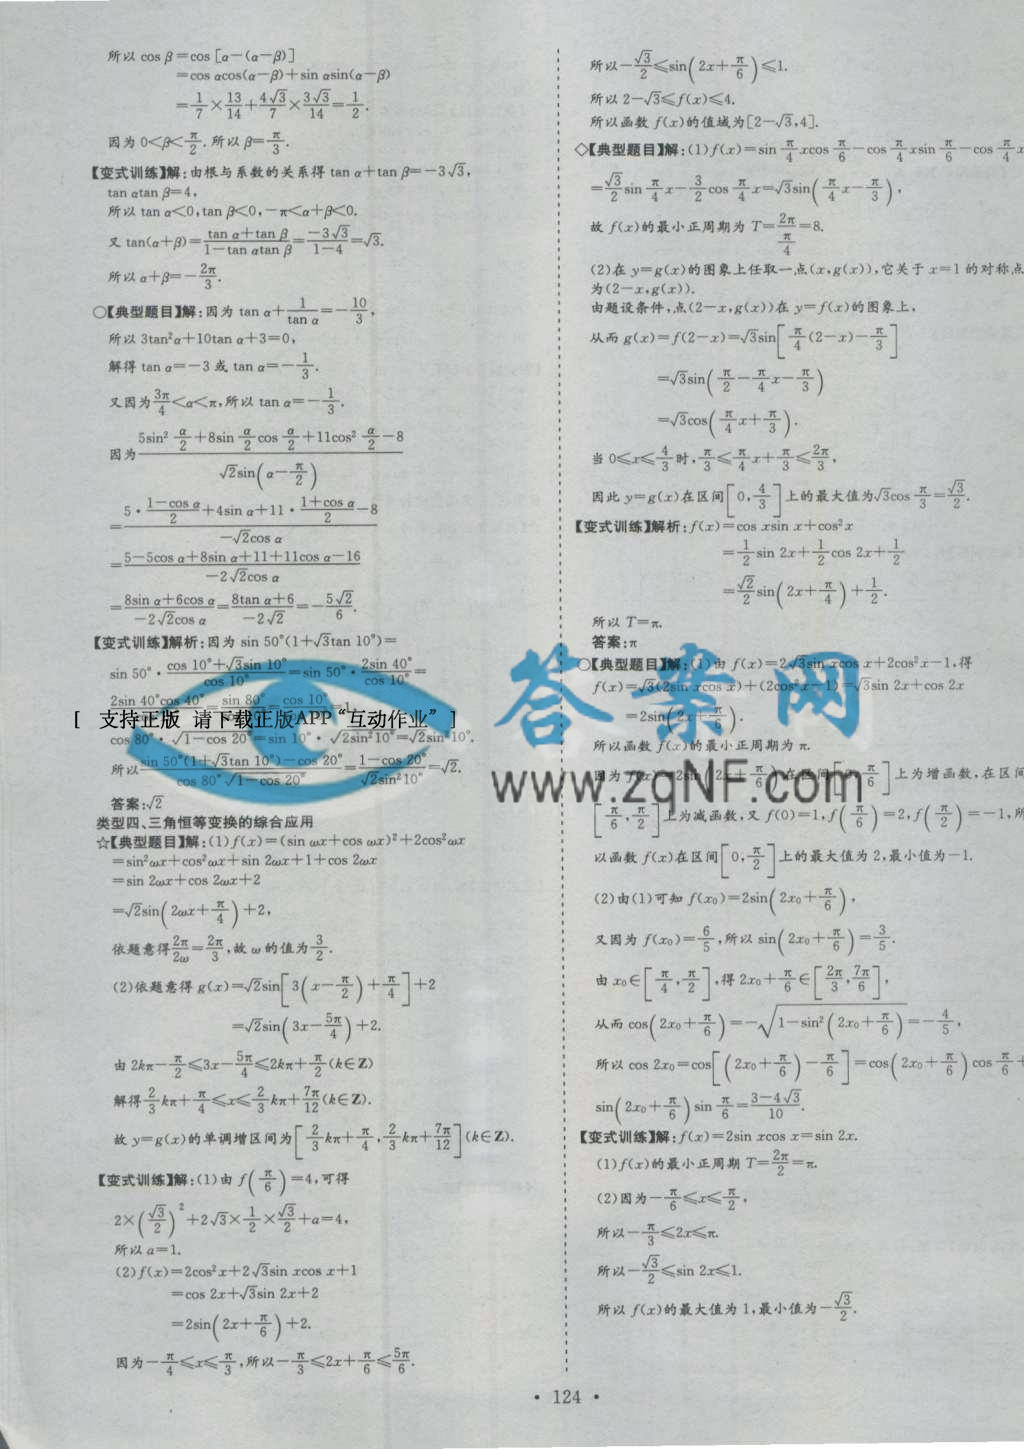 所以 cos β=cos [α-(α-β)]
=cos αcos(α-β)+sin αsin(α-β)
=1/7×13/14+4√3/7×3√3/14=1/2.
因为 0<β<π/2. 所以 β=π/3.
【变式训练】解:由根与系数的关系得 tan α+tan β=-3√3,
tan αtan β=4,
所以 tan α<0,tan β<0,-π<α+β<0.
又 tan(α+β)=(tan α+tan β)/(1-tan αtan β)=(-3√3)/(1-4)=√3.
所以 α+β=-2π/3.
○【典型题目】解:因为 tan α+1/tan α=-10/3,
所以 3tan²α+10tan α+3=0,
解得 tan α=-3 或 tan α=-1/3.
又因为 3π/4<α<π,所以 tan α=-1/3.
因为 (5sin² α/2+8sin α/2 cos α/2+11cos² α/2-8)/(√2sin(α-π/2))
=(5·(1-cos α)/2+4sin α+11·(1+cos α)/2-8)/(-√2cos α)
=(5-5cos α+8sin α+11+11cos α-16)/(-2√2cos α)
=(8sin α+6cos α)/(-2√2cos α)=(8tan α+6)/(-2√2)=-5√2/6.
【变式训练】解析:因为 sin 50°(1+√3tan 10°)=
sin 50°·(cos 10°+√3sin 10°)/cos 10°=sin 50°·2sin 40°/cos 10°=
2sin 40°cos 40°/cos 10°=sin 80°/cos 10°=cos 10°/cos 10°
[ 支持正版 请下载正版APP“互动作业” ]
cos 80°·√1-cos 20°=sin 10°·√2sin²10°=√2sin²10°.
所以 (sin 50°(1+√3tan 10°)-cos 20°)/(cos 80°√1-cos 20°)=(1-cos 20°)/(√2sin²10°)=√2.
答案:√2
类型四、三角恒等变换的综合应用
☆【典型题目】解:(1)f(x)=(sin ωx+cos ωx)²+2cos²ωx
=sin²ωx+cos²ωx+sin 2ωx+1+cos 2ωx
=sin 2ωx+cos 2ωx+2
=√2sin(2ωx+π/4)+2,
依题意得 2π/2ω=2π/3,故 ω 的值为 3/2.
(2)依题意得 g(x)=√2sin[3(x-π/2)+π/4]+2
=√2sin(3x-5π/4)+2.
由 2kπ-π/2≤3x-5π/4≤2kπ+π/2(k∈Z)
解得 2/3kπ+π/4≤x≤2/3kπ+7π/12(k∈Z).
故 y=g(x)的单调增区间为[2/3kπ+π/4,2/3kπ+7π/12](k∈Z).
【变式训练】解:(1)由 f(π/6)=4,可得
2×(√3/2)²+2√3×1/2×√3/2+a=4,
所以 a=1.
(2)f(x)=2cos²x+2√3sin xcos x+1
=cos 2x+√3sin 2x+2
=2sin(2x+π/6)+2.
因为-π/4≤x≤π/3,所以-π/3≤2x+π/6≤5π/6.
所以-√3/2≤sin(2x+π/6)≤1.
所以 2-√3≤f(x)≤4.
所以函数 f(x)的值域为[2-√3,4].
◇【典型题目】解:(1)f(x)=sin π/4 xcos π/6-cos π/4 xsin π/6-cos π/4 x
=√3/2 sin π/4 x-3/2 cos π/4 x=√3sin(π/4 x-π/3),
故 f(x)的最小正周期为 T=2π/(π/4)=8.
(2)在 y=g(x)的图象上任取一点(x,g(x)),它关于 x=1 的对称点
为(2-x,g(x)).
由题设条件,点(2-x,g(x))在 y=f(x)的图象上,
从而 g(x)=f(2-x)=√3sin[π/4(2-x)-π/3]
=√3sin(π/2-π/4 x-π/3)
=√3cos(π/4 x+π/3).
当 0≤x≤4/3 时,π/3≤π/4 x+π/3≤2π/3,
因此 y=g(x)在区间[0,4/3]上的最大值为√3cos π/3=√3/2.
【变式训练】解析:f(x)=cos xsin x+cos²x
=1/2 sin 2x+1/2 cos 2x+1/2
=√2/2 sin(2x+π/4)+1/2.
所以 T=π.
答案:π
○【典型题目】解:(1)由 f(x)=2√3sin xcos x+2cos²x-1,得
f(x)=√3(2sin xcos x)+(2cos²x-1)=√3sin 2x+cos 2x
=2sin(2x+π/6).
所以函数 f(x)的最小正周期为 π.
因为 f(x)=2sin(2x+π/6)在区间[0,π/6]上为增函数,在区间
[π/6,π/2]上为减函数,又 f(0)=1,f(π/6)=2,f(π/2)=-1,所
以函数 f(x)在区间[0,π/2]上的最大值为 2,最小值为-1.
(2)由(1)可知 f(x₀)=2sin(2x₀+π/6),
又因为 f(x₀)=6/5,所以 sin(2x₀+π/6)=3/5.
由 x₀∈[π/4,π/2],得 2x₀+π/6∈[2π/3,7π/6],
从而 cos(2x₀+π/6)=-√1-sin²(2x₀+π/6)=-4/5,
所以 cos 2x₀=cos[(2x₀+π/6)-π/6]=cos(2x₀+π/6)cos π/6+
sin(2x₀+π/6)sin π/6=(3-4√3)/10.
【变式训练】解:f(x)=2sin xcos x=sin 2x.
(1)f(x)的最小正周期 T=2π/2=π.
(2)因为-π/6≤x≤π/2,
所以-π/3≤2x≤π.
所以-√3/2≤sin 2x≤1.
所以 f(x)的最大值为 1,最小值为-√3/2.
答案网
www.zqNF.com
• 124 •